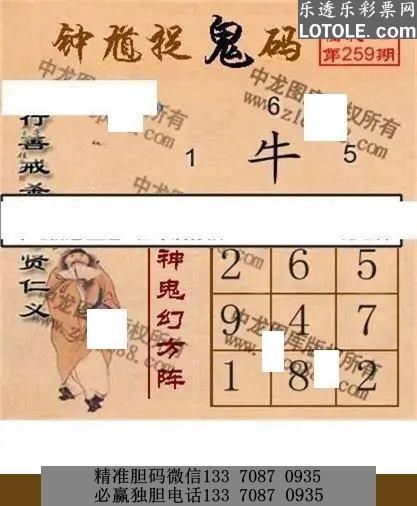 乐透乐彩票网
LOTOLE.COM
钟馗捉鬼码
第259期
中龙图库版权所有
6
1
牛
5
行善戒
贤仁义
神鬼幻方阵
2 6 5
9 4 7
1 8 2
精准胆码微信133 7087 0935
必赢独胆电话133 7087 0935